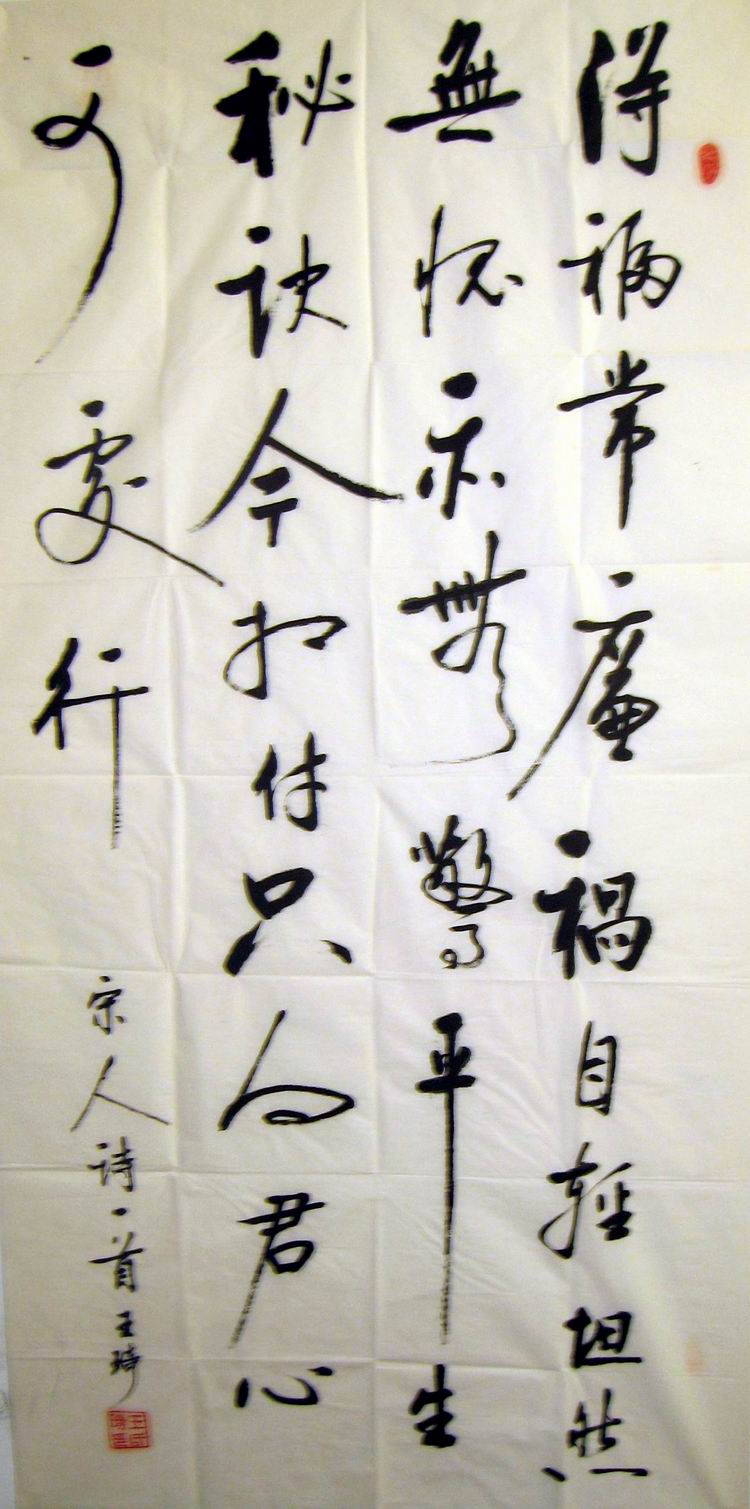 得福常廉禍自輕坦然
無愧亦無驚平生
秘訣今相付只向君心
可處行
宋人诗一首王琦